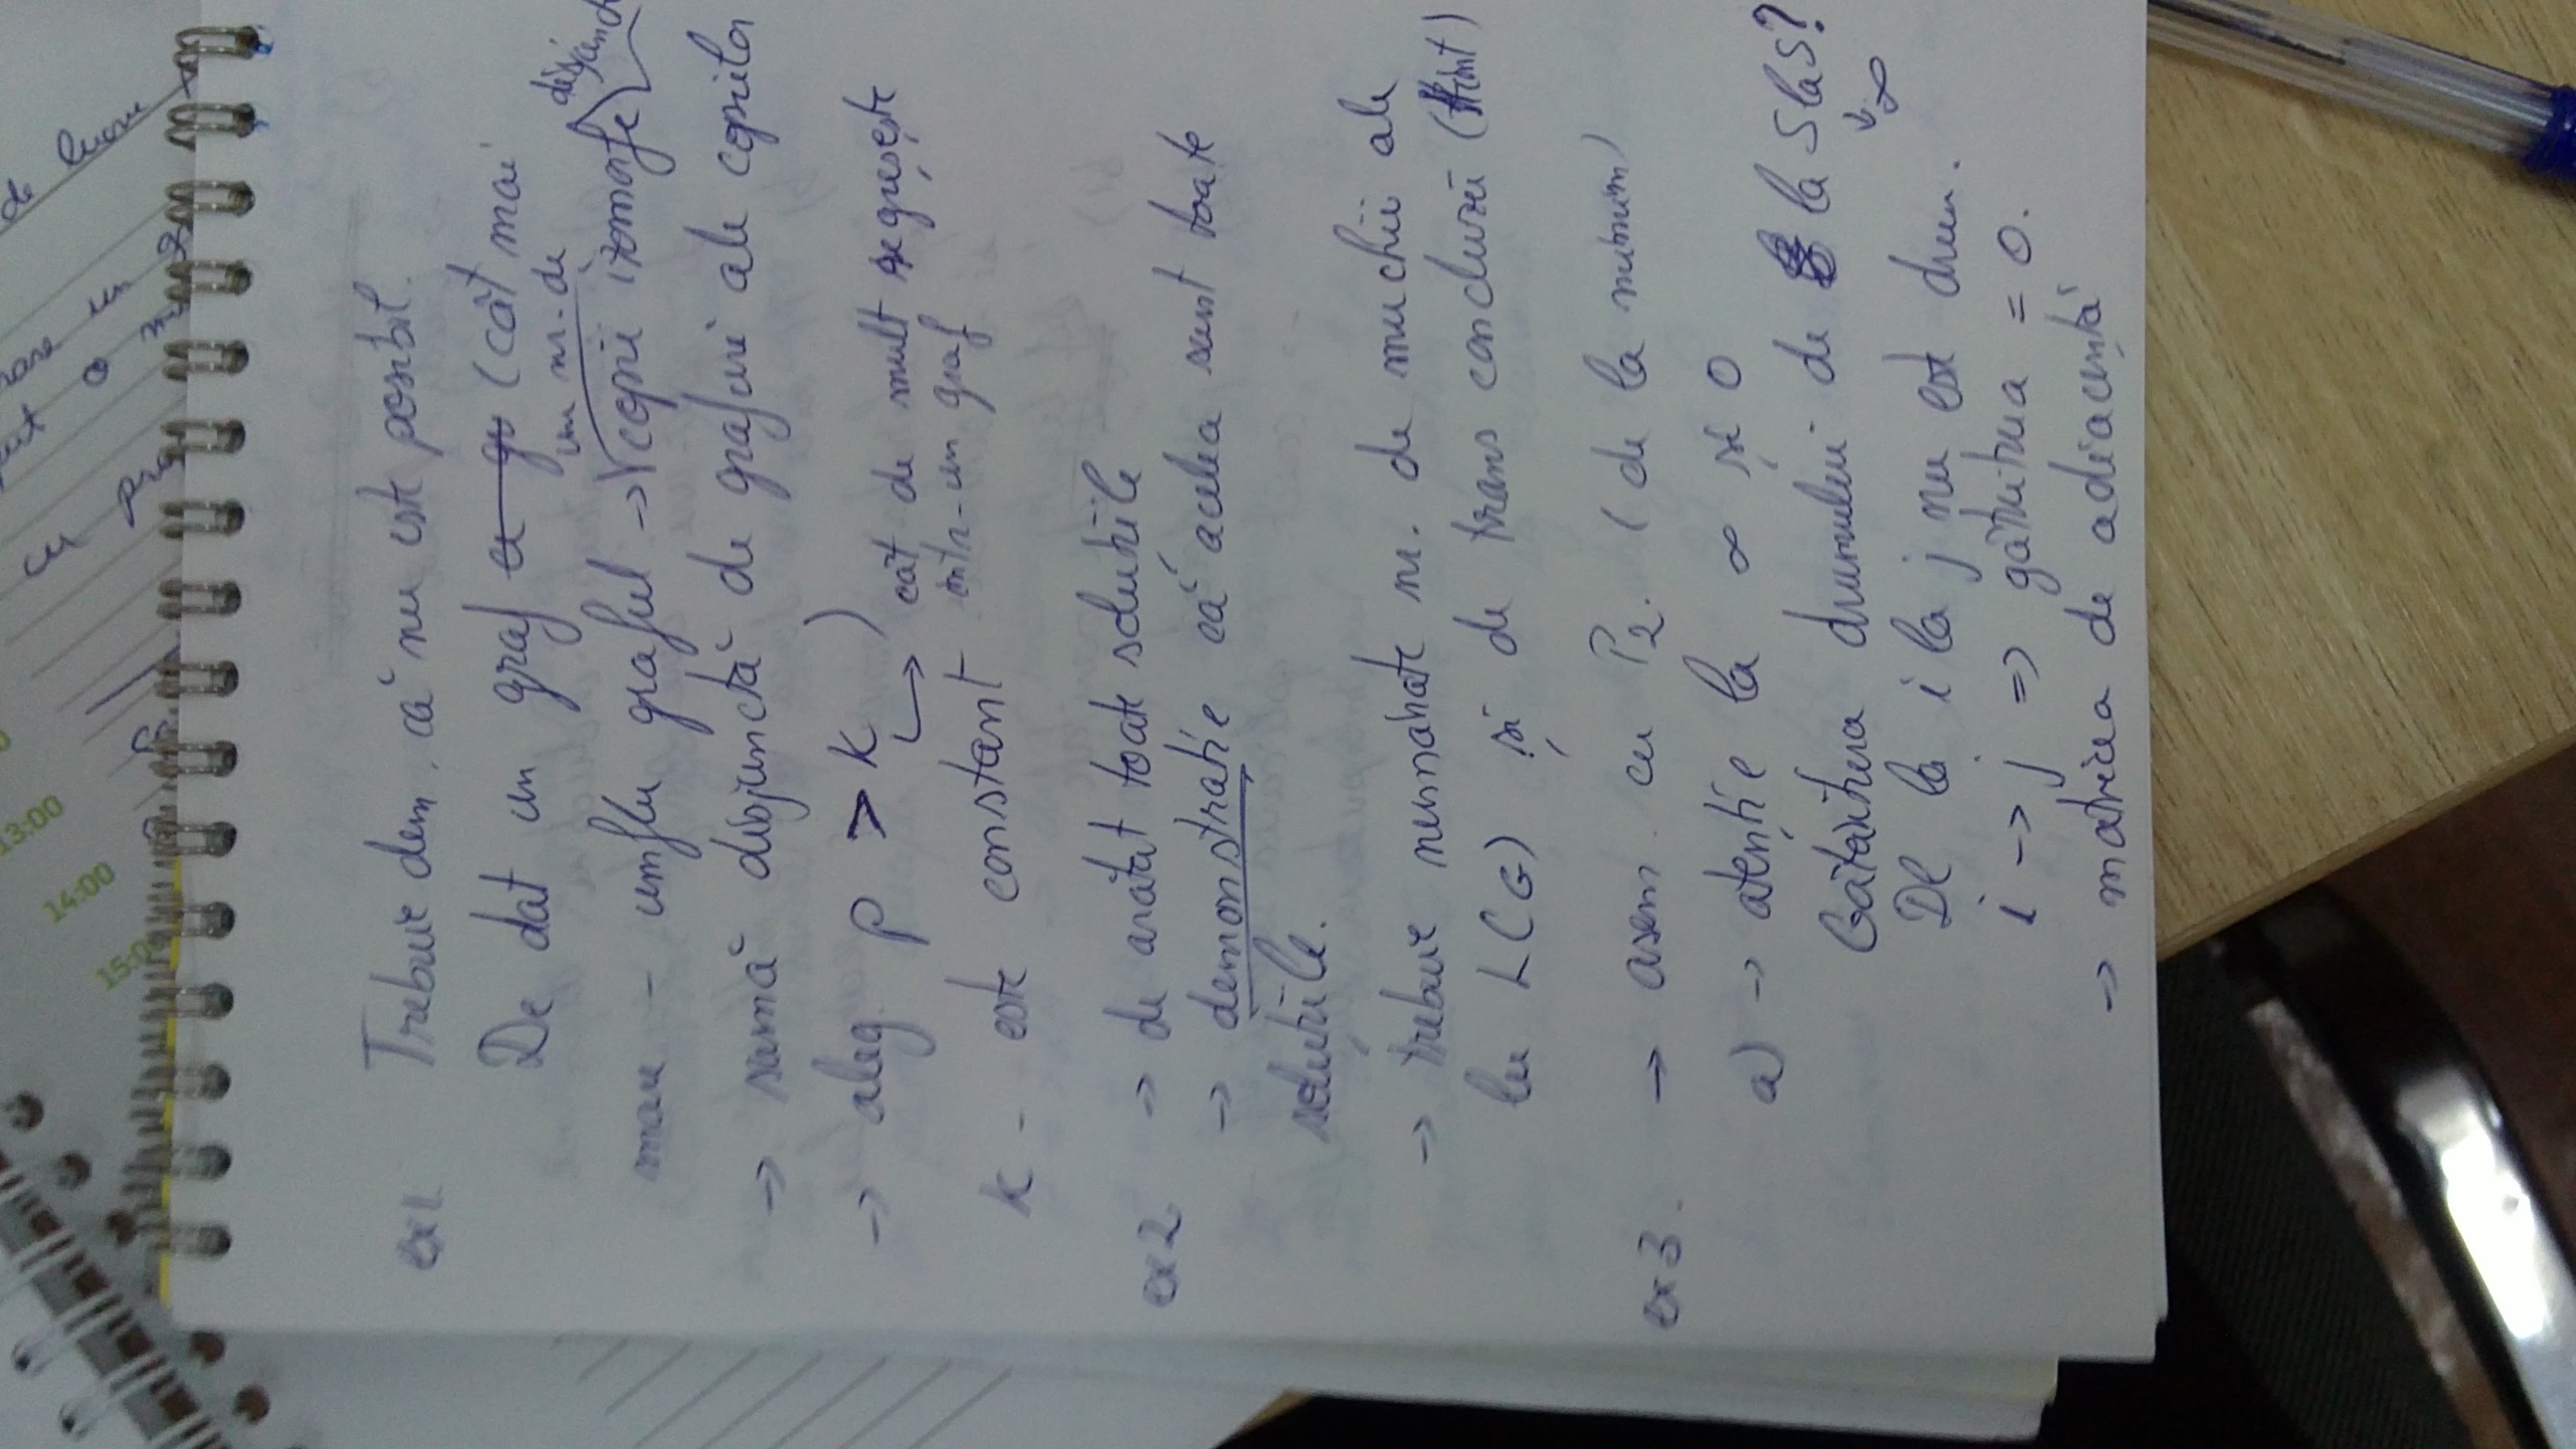 13:00
14:00
15:00
cu
de
ex1. Trebuie dem. că nu este posibil.
De dat un graf (cât mai
un nr. de
mare - umflu graful -> copii izomorfe
-> sumă disjunctă de grafuri ale copiilor
-> aleg p > k )
cât de mult se greșește
într-un graf
k - este constant
ex2. -> de arătat toate soluțiile
-> demonstrație că acelea sunt toate
soluțiile.
-> trebuie numărate nr. de muchii ale
lu L(G) și de tras concluzii (Hint)
ex3. -> asem. cu P2. (de la minim)
a) -> atenție la ∞ și 0
Gâtuitura drumului de la S la S?
↓ ∞
De la i la j nu este drum.
i -> j => gâtuitura = 0.
-> matricea de adiacență